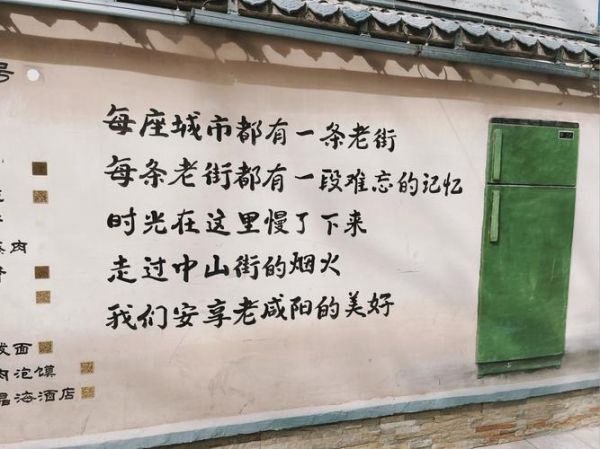 号
每座城市都有一条老街
每条老街都有一段难忘的记忆
时光在这里慢了下来
走过中山街的烟火
我们安享老咸阳的美好
肉
面
肉泡馍
海酒店